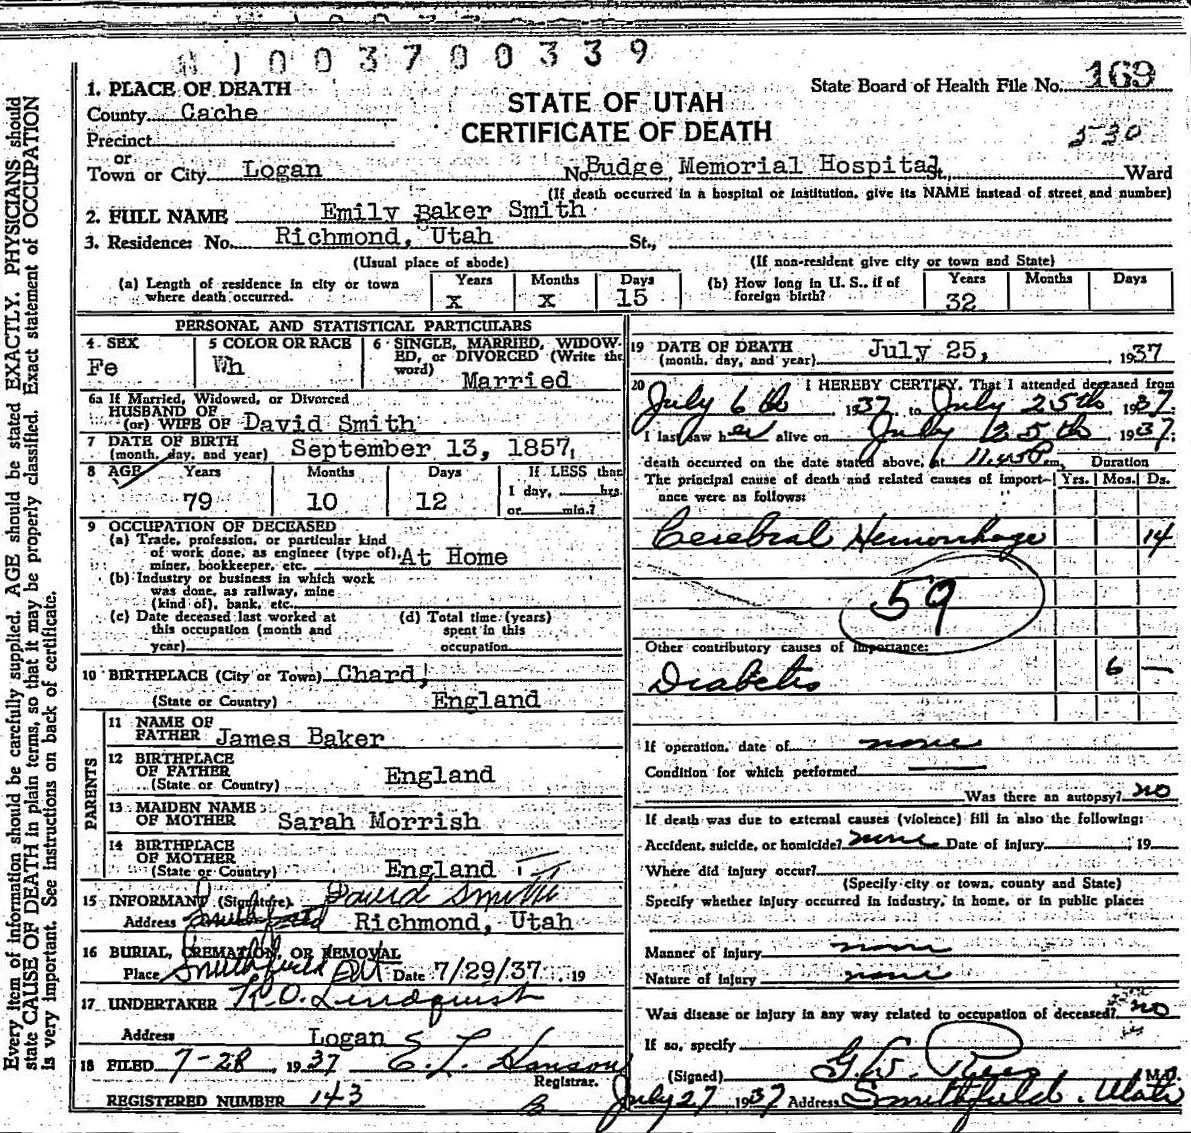 1003700339
State Board of Health File No. 169
1. PLACE OF DEATH
STATE OF UTAH
County Cache
CERTIFICATE OF DEATH
Precinct
530
or
Town or City Logan No. Budge Memorial Hospital St., Ward
(If death occurred in a hospital or institution, give its NAME instead of street and number)
2. FULL NAME Emily Baker Smith
3. Residence: No. Richmond, Utah St.,
(Usual place of abode) (If non-resident give city or town and State)
(a) Length of residence in city or town where death occurred. Years x Months x Days 15
(b) How long in U. S., if of foreign birth? Years 32 Months Days
PERSONAL AND STATISTICAL PARTICULARS
4 SEX Fe
5 COLOR OR RACE Wh
6 SINGLE, MARRIED, WIDOWED, or DIVORCED (Write the word) Married
6a If Married, Widowed, or Divorced
HUSBAND OF
(or) WIFE OF David Smith
7 DATE OF BIRTH
(month, day, and year) September 13, 1857
8 AGE Years 79 Months 10 Days 12 If LESS than 1 day, hrs. or min.?
9 OCCUPATION OF DECEASED
(a) Trade, profession, or particular kind
of work done, as engineer (type of),
miner, bookkeeper, etc. At Home
(b) Industry or business in which work
was done, as railway, mine
(kind of), bank, etc.
(c) Date deceased last worked at
this occupation (month and
year)
(d) Total time (years)
spent in this
occupation
10 BIRTHPLACE (City or Town) Chard,
(State or Country) England
PARENTS
11 NAME OF
FATHER James Baker
12 BIRTHPLACE
OF FATHER England
(State or Country)
13 MAIDEN NAME
OF MOTHER Sarah Morrish
14 BIRTHPLACE
OF MOTHER
(State or Country) England
15 INFORMANT (Signature) David Smith
Address Smithfield Richmond, Utah
16 BURIAL, CREMATION, OR REMOVAL
Place Smithfield Ut Date 7/29/37 19
17 UNDERTAKER R.O. Lindquist
Address Logan
18 FILED 7-28 1937 E. L. Hanson
Registrar.
REGISTERED NUMBER 143
19 DATE OF DEATH
(month, day, and year) July 25, 1937
20 I HEREBY CERTIFY, That I attended deceased from
July 6th 1937, to July 25th 1937.
I last saw her alive on July 25th 1937
death occurred on the date stated above, at 11.45P m. Duration
The principal cause of death and related causes of importance were as follows: Yrs. Mos. Ds.
Cerebral Hemorrhage 14
59
Other contributory causes of importance:
Diabetis 6 —
If operation, date of none
Condition for which performed
Was there an autopsy? no
If death was due to external causes (violence) fill in also the following:
Accident, suicide, or homicide? none Date of injury , 19
Where did injury occur?
(Specify city or town, county and State)
Specify whether injury occurred in industry, in home, or in public place:
Manner of injury none
Nature of injury none
Was disease or injury in any way related to occupation of deceased? no
If so, specify
(Signed) G.W. M.D.
July 27 1937 Address Smithfield. Utah
Every item of information should be carefully supplied. AGE should be stated EXACTLY. PHYSICIANS should
state CAUSE OF DEATH in plain terms, so that it may be properly classified. Exact statement of OCCUPATION
is very important. See instructions on back of certificate.